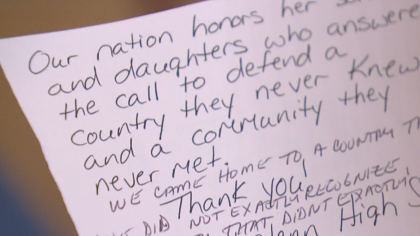 Our nation honors her
and daughters who answere
the call to defend a
country they never knew
and a community they
never met.
WE CAME HOME TO A COUNTRY
Thank you,
DID NOT EXACTLY RECOGNIZE
THAT DIDN'T EXACTLY
High